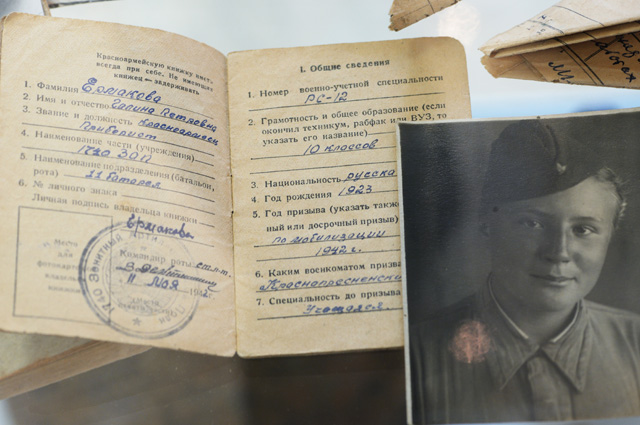 Красноармейскую книжку иметь
всегда при себе. Не имеющих
книжек — задерживать
1. Фамилия Ермакова
2. Имя и отчество Галина Петровна
3. Звание и должность Красноармеец
Приборист
4. Наименование части (учреждения)
1740 ЗАП
5. Наименование подразделения (батальон,
рота) 11 батарея
6. № личного знака
Личная подпись владельца книжки
Ермакова
Место
для
фотокарточки
владельца
книжки
Командир роты ст. л-т.
11 мая 1942
1. Общие сведения
1. Номер военно-учетной специальности
РС-12
2. Грамотность и общее образование (если
окончил техникум, рабфак или ВУЗ, то
указать его название)
10 классов
3. Национальность русска
4. Год рождения 1923
5. Год призыва (указать также
ный или досрочный призыв)
по мобилизации
1942 г.
6. Каким военкоматом призва
Краснопресненски
7. Специальность до призыва
Учащаяся.